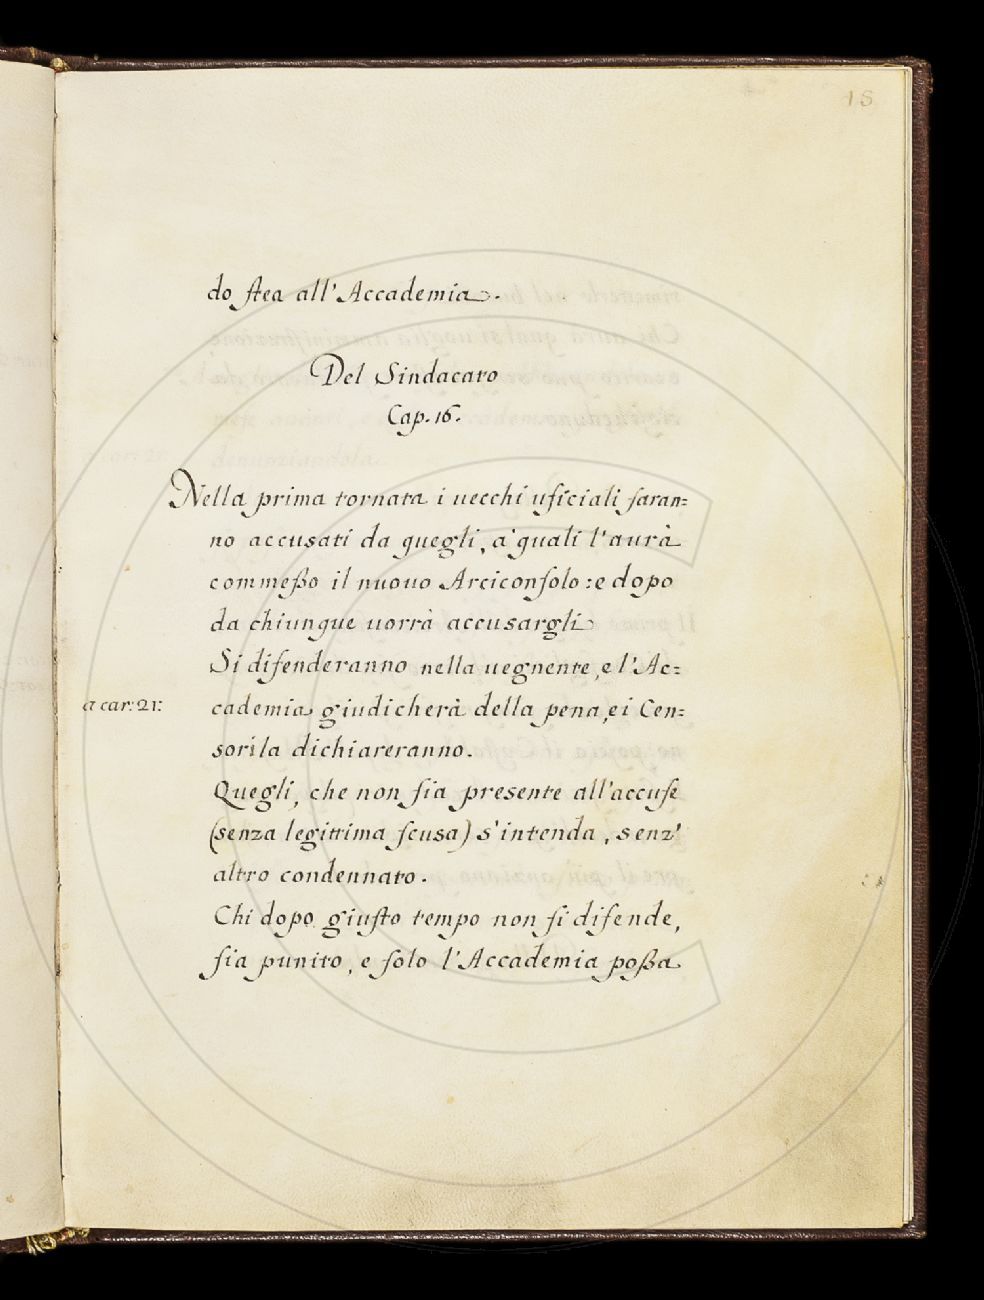 18
do stea all'Accademia.
Del Sindacato
Cap. 16.
Nella prima tornata i uecchi uficiali saran=
no accusati da quegli, a' quali l'aurà
commeßo il nuouo Arciconsolo: e dopo
da chiunque uorrà accusargli
Si difenderanno nella uegnente, e l'Ac=
a car: 21: cademia giudicherà della pena, e i Cen=
sori la dichiareranno.
Quegli, che non sia presente all'accuse
(senza legittima scusa) s'intenda, senz'
altro condennato.
Chi dopo giusto tempo non si difende,
sia punito, e solo l'Accademia poßa